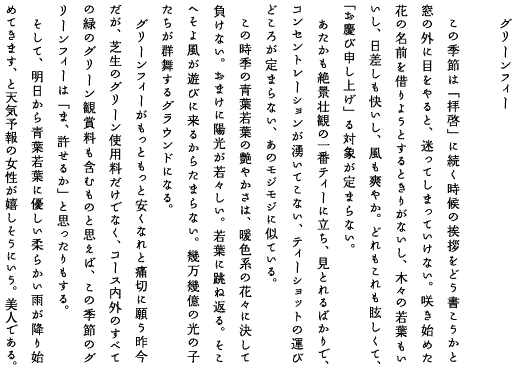 グリーンフィー
この季節は「拝啓」に続く時候の挨拶をどう書こうかと
窓の外に目をやると、迷ってしまっていけない。咲き始めた
花の名前を借りようとするときりがないし、木々の若葉もい
いし、日差しも快いし、風も爽やか。どれもこれも眩しくて、
「お慶び申し上げ」る対象が定まらない。
あたかも絶景壮観の一番ティーに立ち、見とれるばかりで、
コンセントレーションが湧いてこない、ティーショットの運び
どころが定まらない、あのモジモジに似ている。
この時季の青葉若葉の艶やかさは、暖色系の花々に決して
負けない。おまけに陽光が若々しい。若葉に跳ね返る。そこ
へそよ風が遊びに来るからたまらない。幾万幾億の光の子
たちが群舞するグラウンドになる。
グリーンフィーがもっともっと安くなれと痛切に願う昨今
だが、芝生のグリーン使用料だけでなく、コース内外のすべて
の緑のグリーン観賞料も含むものと思えば、この季節のグ
リーンフィーは「ま、許せるか」と思ったりもする。
そして、明日から青葉若葉に優しい柔らかい雨が降り始
めてきます、と天気予報の女性が嬉しそうにいう。美人である。